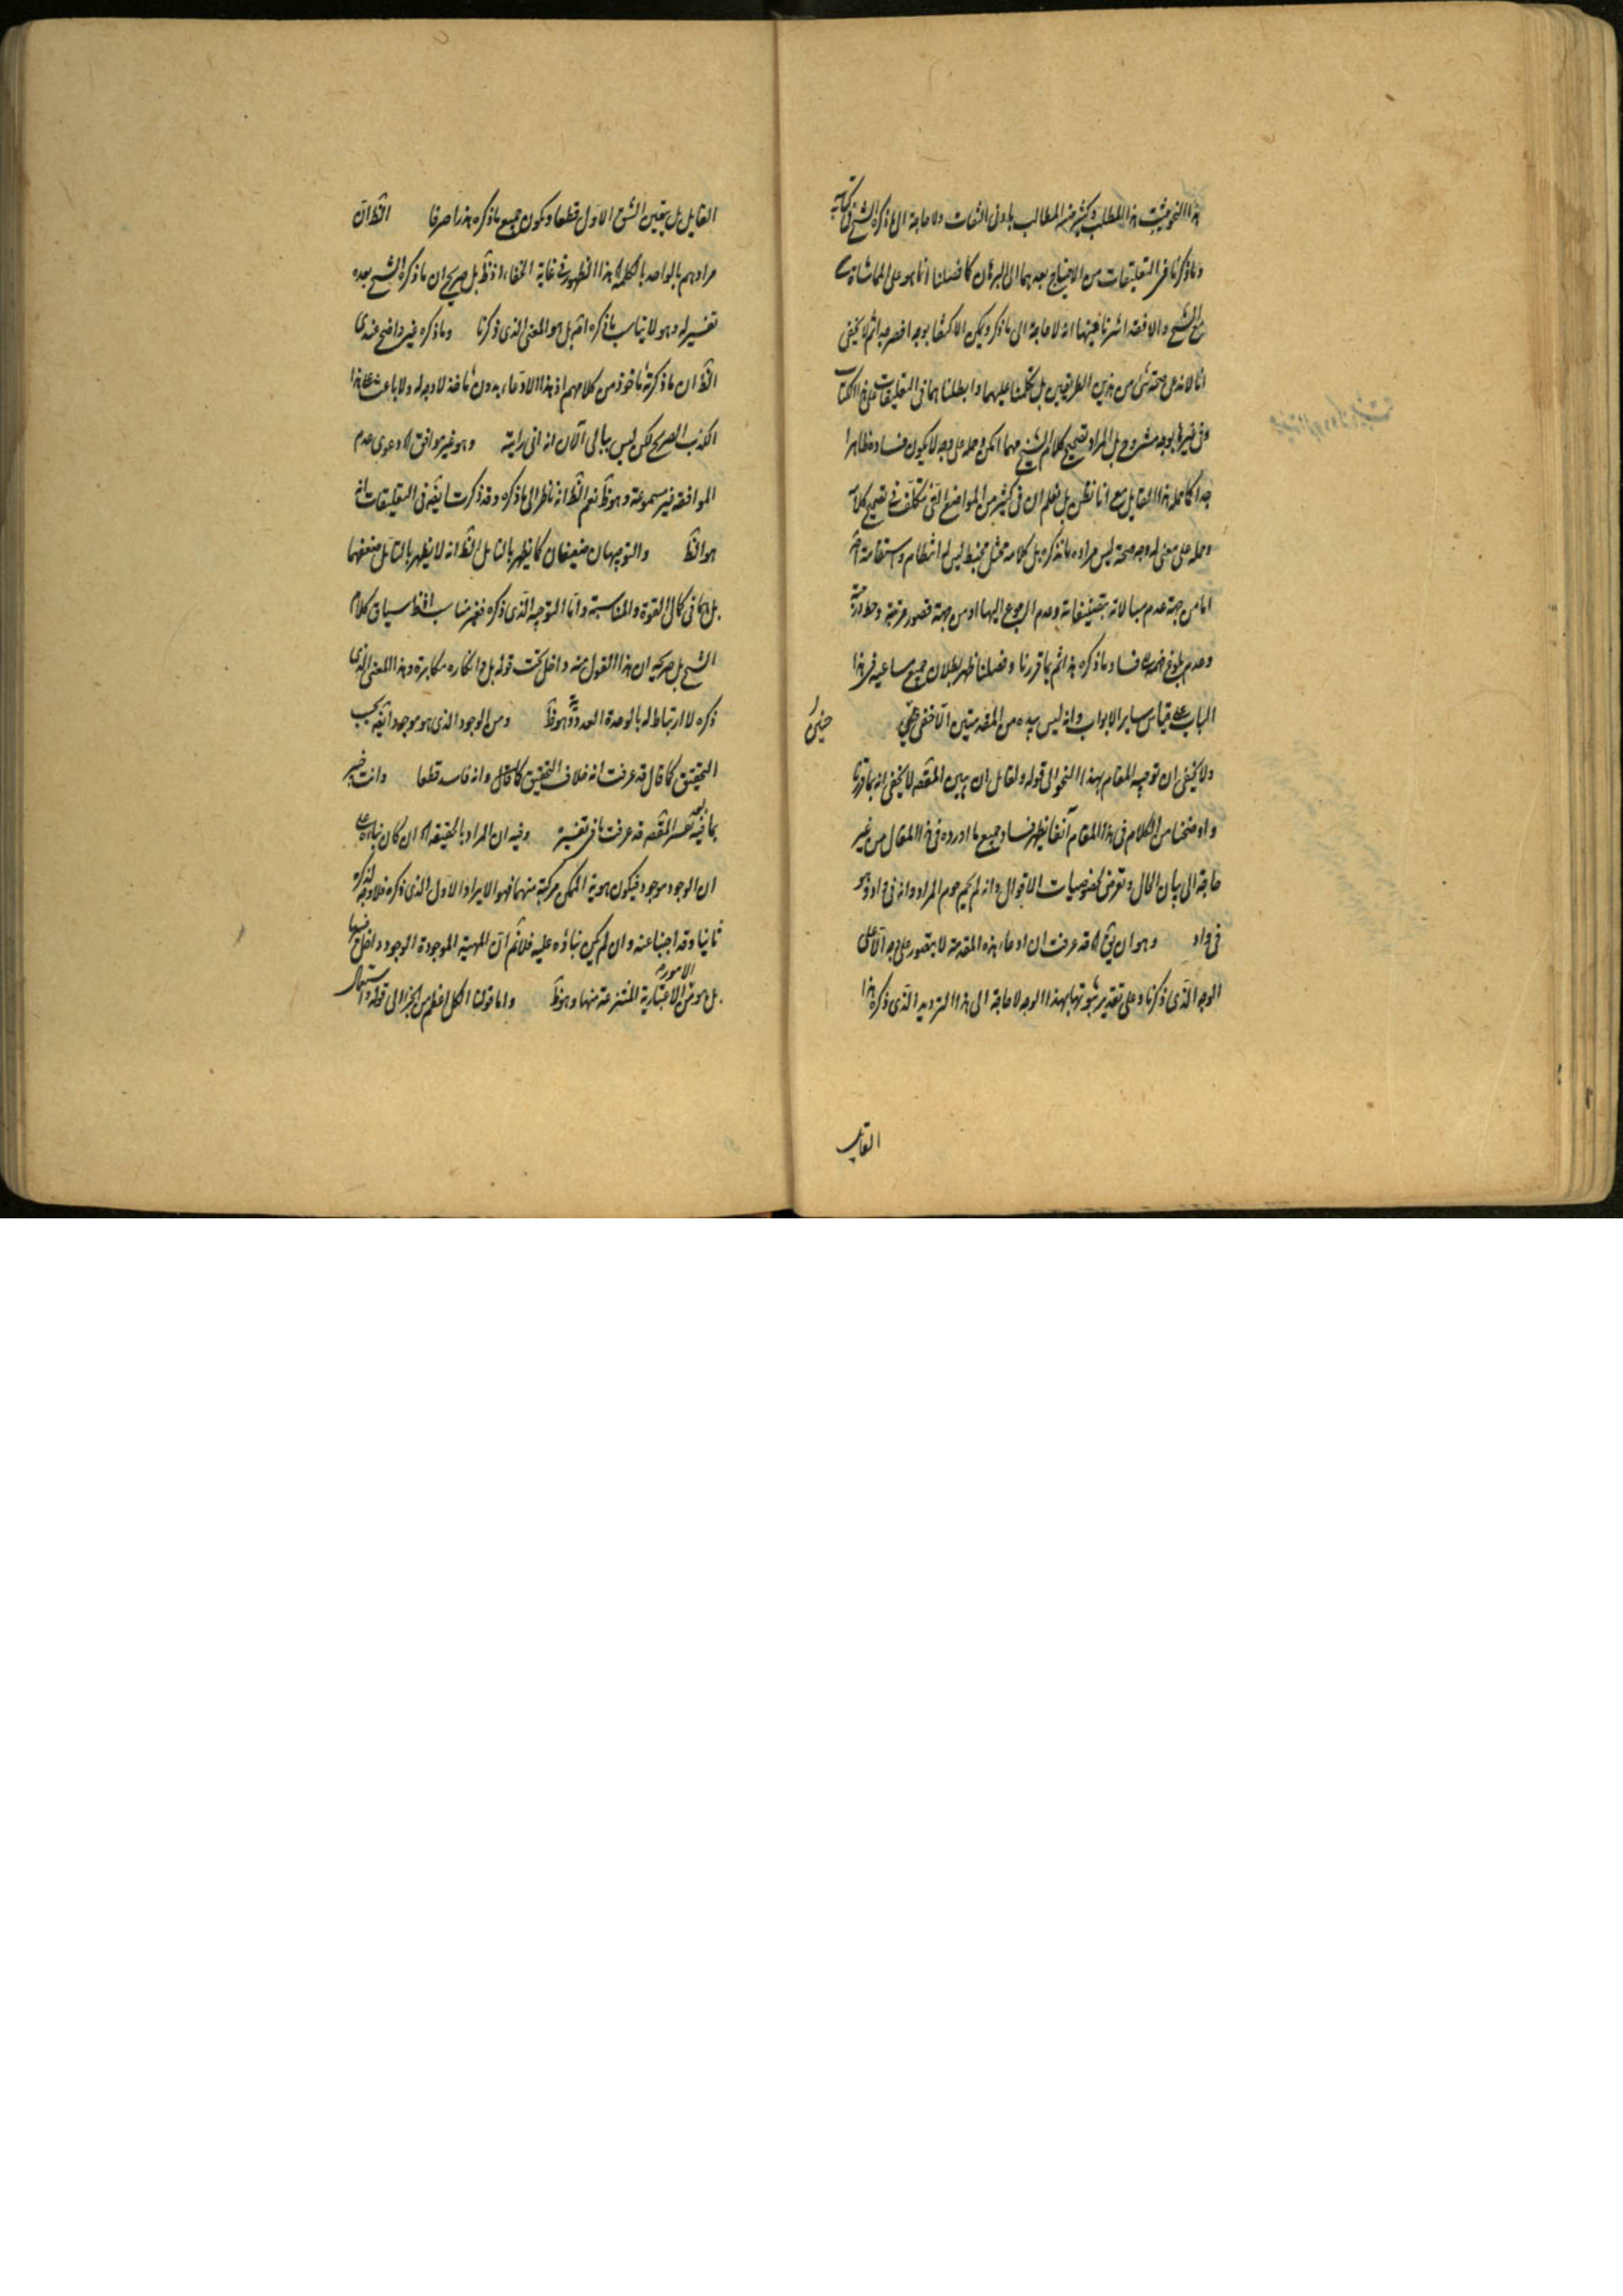 هذا النحو يثبت هذا المطلب وكثير من المطالب بادنى التفات ولا حاجة الى ما ذكره الشيخ فى كتابه
وما ذكرنا فى التعليقات من الاحتياج بعدهما الى البرهان كما فصلنا انما هو على المماشاة
مع الشيخ والا فقد اشرنا فيها انه لا حاجة الى ما ذكر ويمكن الاكتفا بوجه اخصر جدا ثم لا يخفى
انا لا ندعى صحة شئ من هذين الطريقين بل تكلمنا عليهما وابطلناهما فى التعليقات على هذا الكتاب
وفى غيرها بوجه مشروح بل المراد تصحيح كلام الشيخ مهما امكن وحمله على وجه لا يكون فساده ظاهرا
جدا كما حمله هذا القايل مع انا نظن بل نعلم ان فى كثير من المواضع التى نتكلف فى تصحيح كلامه
وحمله على معنى له وجه صحة ليس مراده ما نذكره بل كلامه مختل مختبط ليس له انتظام واستقامة
اما من جهة عدم مبالاته بتصنيفاته وعدم الرجوع اليها او من جهة قصور مرتبته وحط درجته
وعدم بلوغ فهمه فساد ما ذكره هذا ثم بما قررنا وفصلنا ظهر بطلان جميع مساعيه فى هذا
الباب على قياس ساير الابواب وانه ليس بيده من المقدمتين الا خفى حنين
ولا يخفى ان توجيه المقام بهذا النحو الى قوله ولقايل ان يبين المقصد لا يخفى انه بما قررنا
واوضحنا من الكلام فى هذا المقام آنفا يظهر فساد جميع ما اورده فى هذا المقال من غير
حاجة الى بيان الحال وتعرض لخصوصيات الاقوال وانه لم يحم حوم المراد وانه فى واد وهو
فى واد وهو ان يق اه قد عرفت ان ادعاء هذه المقدمة لا يتصور على وجه الا على
الوجه الذى ذكرنا وعلى تقدير ثبوتها بهذا الوجه لا حاجة الى هذا الترديد الذى ذكره هذا
القايل
القايل بل يتعين الشق الاول قطعا ويكون جميع ما ذكره هذرا صرفا الظ ان
مرادهم بالواحد بالكلمة اه هذا الظهور فى غاية الخفاء اذ ظ بل صريح ان ما ذكره الشيخ بعده
تفسير له وهو لا يناسب ما ذكره اثم بل هو المعنى الذى ذكرنا وما ذكره غير واضح عندى
الظ ان ما ذكرته ماخوذ من كلامهم اذ هذا الادعاء بدون ماخذ لا وجه له ولا باعث على هذا
الكذب الصريح لكن ليس ببالى الآن انه انى رايته وهو غير موافق اه دعوى عدم
الموافقة غير مسموعة وهو ظ نعم الظ انه ناظر الى ما ذكره وقد ذكرت ايضه فى التعليقات انه
هو الظ والتوجيهان ضعيفان كما يظهر بالتامل الظ انه لا يظهر بالتامل ضعفهما
بل هما فى كمال القوة والمناسبة واما التوجيه الذى ذكره فغير مناسب لفظ سياق كلام
الشيخ بل صريحه ان هذا القول منه داخل تحت قوله بل وانكاره مكابرة وهذا المعنى الذى
ذكره لا ارتباط له بالوحدة العددية وهو ظ ومن الوجود الذى هو موجود ايضه بحسب
التحقيق كما قال قد عرفت انه خلاف التحقيق كما قال وانه فاسد قطعا وانت خبير
بما فيه تفسير المقصد قد عرفت ما فى تفسيره وفيه ان المراد بالحقيقة اه ان كان بناؤه على
ان الوجود موجود فيكون هوية الممكن مركبة منهما فهو الايراد الاول الذى ذكره فلا وجه لذكره
ثانيا وقد اجبنا عنه وان لم يكن بناؤه عليه فلا ثم ان المهية الموجودة الوجود داخل فيها
بل هو من الامور الاعتبارية المنتزعة منها وهو ظ واما قولنا الكل اعظم من الجزء الى قوله واستعمال